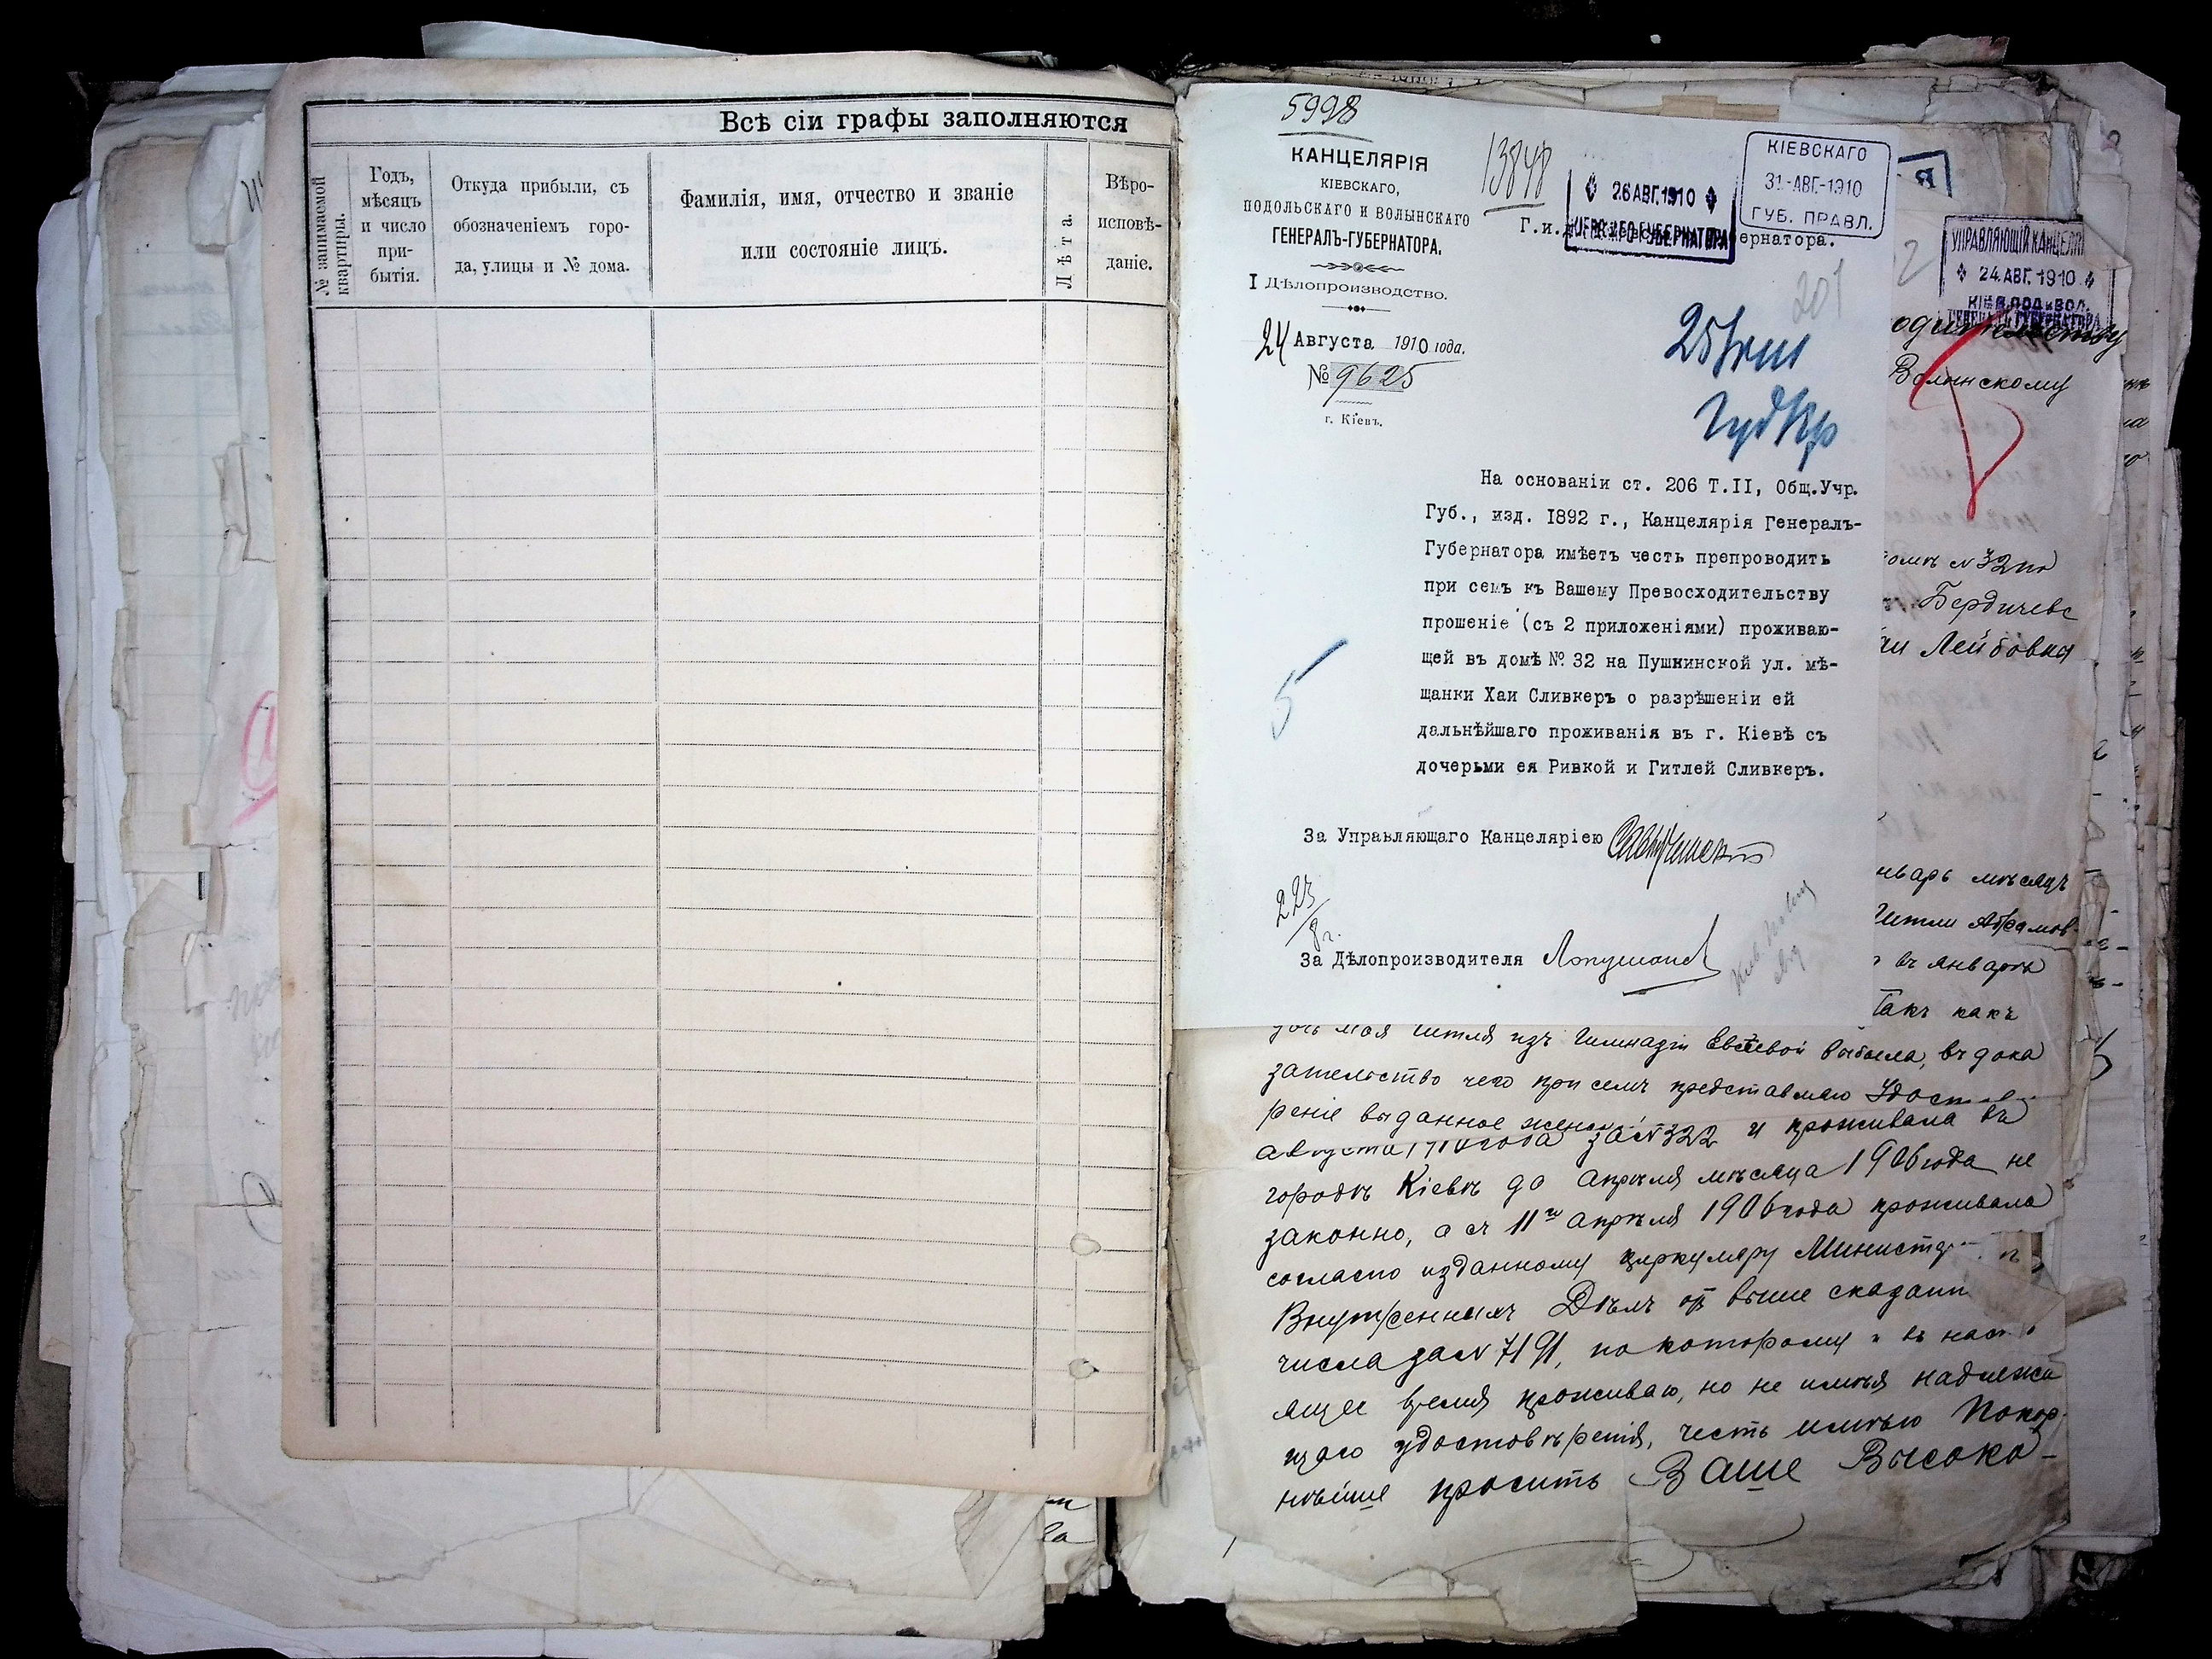 Всѣ сіи графы заполняются
№ занимаемой квартиры.
Годъ, мѣсяцъ и число прибытія.
Откуда прибыли, съ
обозначеніемъ горо-
да, улицы и № дома.
Фамилія, имя, отчество и званіе
или состояніе лицъ.
Лѣта.
Вѣро-
исповѣ-
даніе.
5998
КАНЦЕЛЯРІЯ
КІЕВСКАГО,
ПОДОЛЬСКАГО И ВОЛЫНСКАГО
ГЕНЕРАЛЪ-ГУБЕРНАТОРА.
I Дѣлопроизводство.
24 Августа 1910 года.
№ 9625
г. Кіевъ.
13848
26 АВГ. 1910
КІЕВСКАГО
31-АВГ.-1910
ГУБ. ПРАВЛ.
Г.и.д. ернатора.
201
УПРАВЛЯЮЩІЙ КАНЦЕЛЯР
24. АВГ. 1910
КІЕВ. ПОД. и ВОЛ.
ГЕНЕРАЛЪ-ГУБЕРНАТОРА
2
Волынскому
На основаніи ст. 206 Т.II, Общ.Учр.
Губ., изд. 1892 г., Канцелярія Генералъ-
Губернатора имѣетъ честь препроводить
при семъ къ Вашему Превосходительству
прошеніе (съ 2 приложеніями) проживаю-
щей въ домѣ № 32 на Пушкинской ул. мѣ-
щанки Хаи Сливкеръ о разрѣшеніи ей
дальнѣйшаго проживанія въ г. Кіевѣ съ
дочерьми ея Ривкой и Гитлей Сливкеръ.
5
За Управляющаго Канцеляріею
223
8 г.
За Дѣлопроизводителя
омѣ № 32 по
Бердичевс
Лейбовна
нварь мѣсяцъ
Гитли Абрамов-
въ январѣ
Такъ какъ
дочь моя Гитля изъ Гимназіи выбыла, въ дока
зательство чего при семъ представляю Удостовѣ
реніе выданное
августа 1910 года за № 322 и проживала въ
городѣ Кіевѣ до Апрѣля мѣсяца 1906 года не
законно, а съ 11го апрѣля 1906 года проживала
согласно изданному циркуляру Министр
Внутреннихъ Дѣлъ от выше сказанн
числа за № 7191, по которому и въ наст
ящее время проживаю, но не имѣя надлежа
щаго удостовѣренія, честь имѣю Покор
нѣйше просить Ваше Высоко-